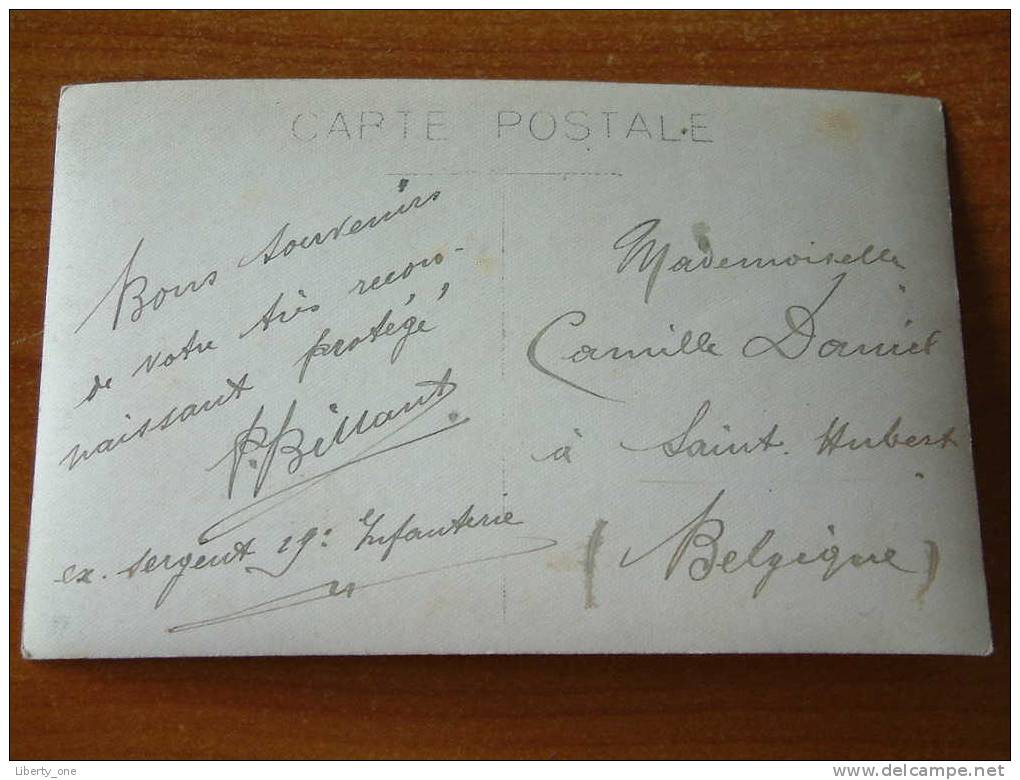 CARTE POSTALE
Bons souvenirs
de votre très recon-
naissant protégé,
P. Billant
ex. sergent 19e Infanterie
Mademoiselle
Camille Daniel
à Saint. Hubert
(Belgique)
Liberty_one
www.delcampe.net